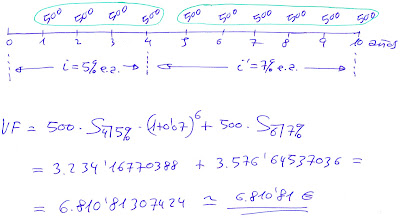 500 500 500 500 500 500 500 500 500 500
0 1 2 3 4 5 6 7 8 9 10 años
i=5% e.a. i'=7% e.a.
VF = 500 · S4|5% · (1+0'07)^6 + 500 · S6|7%
= 3.234'16770388 + 3.576'64537036 =
= 6.810'81307424 ≃ 6.810'81 €